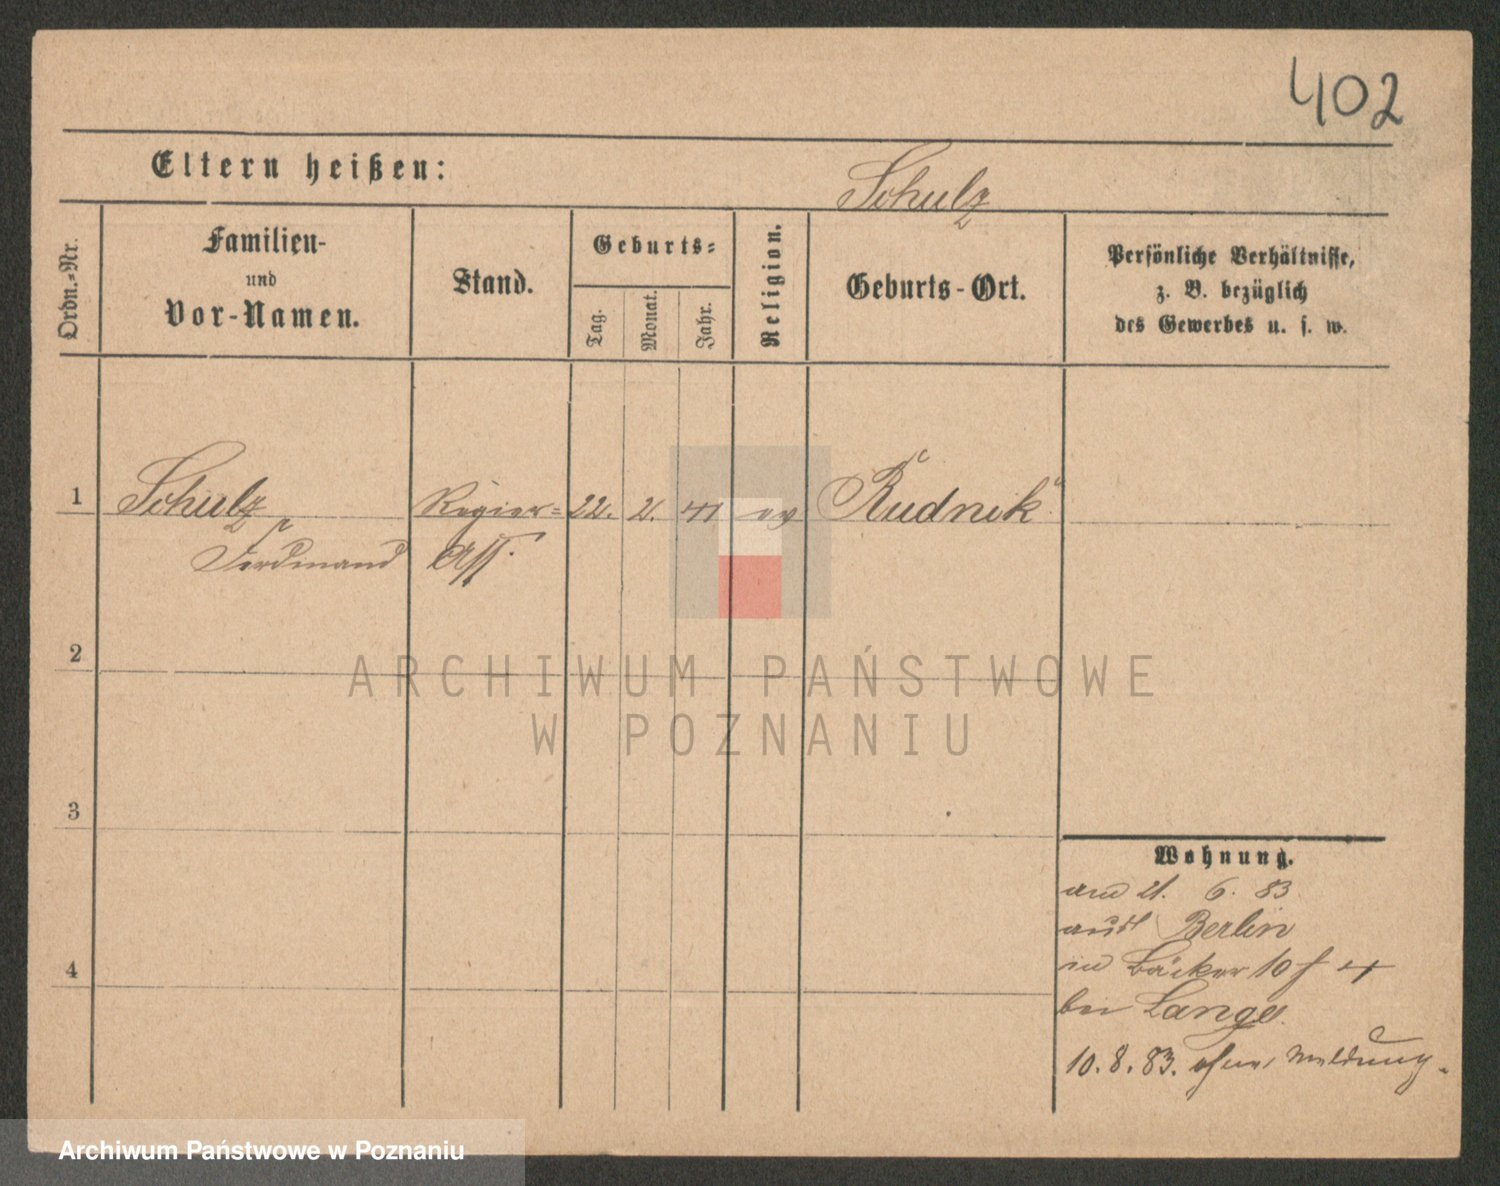 402
Eltern heißen:
Schulz
Ordn.-Nr.
Familien-
und
Vor-Namen.
Stand.
Geburts-
Tag.
Monat.
Jahr.
Religion.
Geburts-Ort.
Persönliche Verhältnisse,
z. B. bezüglich
des Gewerbes u. s. w.
1 Schulz Regier= 22. 2. 41 ev Rudnik
Ferdinand Ass.
2
ARCHIWUM PAŃSTWOWE
W POZNANIU
3
4
Wohnung.
am 21. 6. 83
aus Berlin
in Bäcker 10 f 4
bei Lange.
10. 8. 83. ohne Meldung.
Archiwum Państwowe w Poznaniu